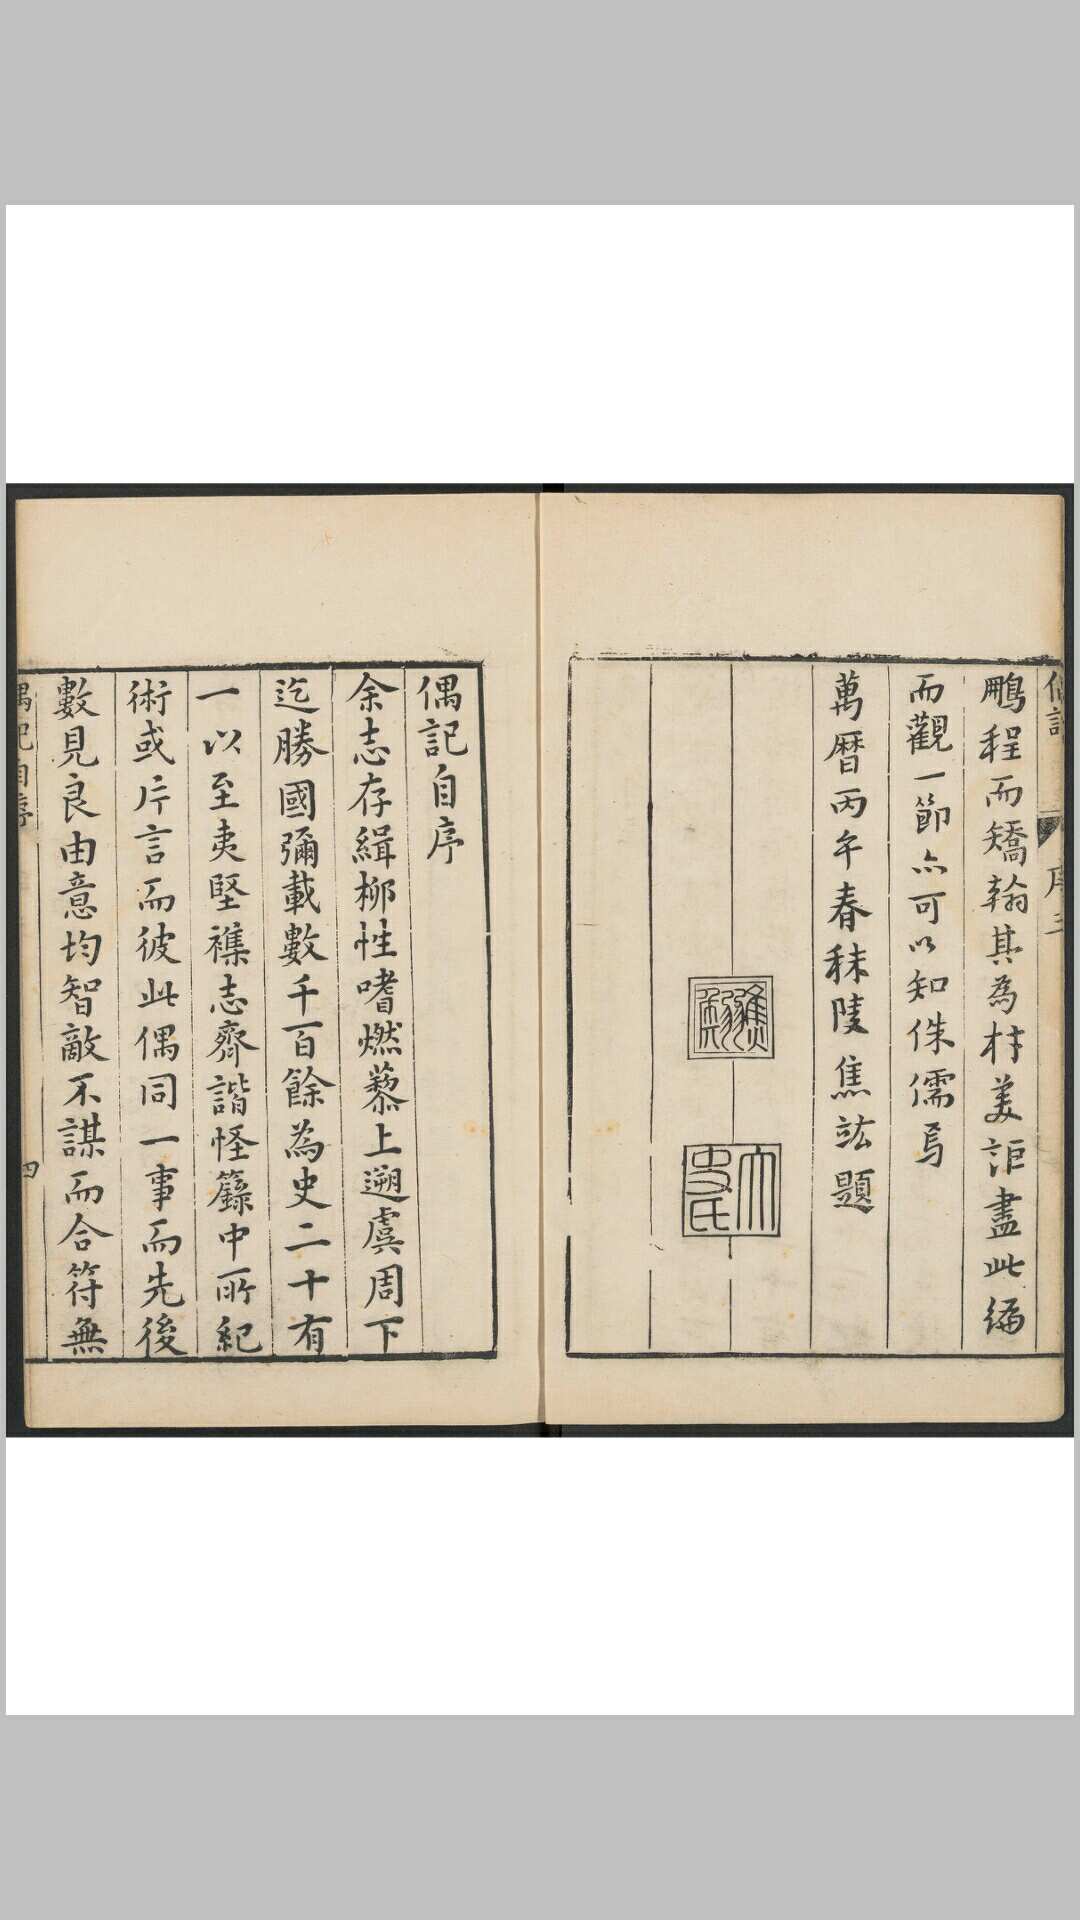 鵬程而矯翰其為材美詎盡此編
而觀一節亦可以知侏儒焉
萬曆丙午春秣陵焦竑題
太史氏
偶記自序
余志存緝柳性嗜燃藜上遡虞周下
迄勝國彌載數千百餘為史二十有
一以至夷堅襍志齊諧怪籙中所紀
術或片言而彼此偶同一事而先後
數見良由意均智敵不謀而合符無
偶記自序
四